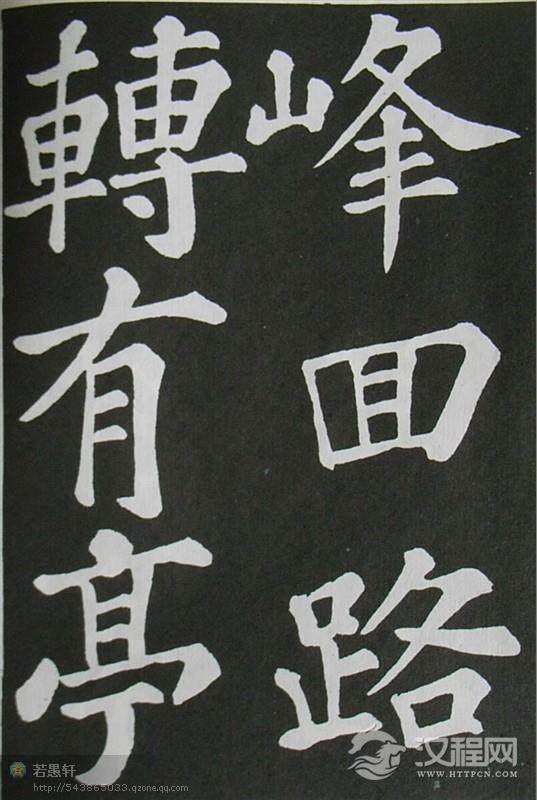 峰回路
轉有亭
若愚轩
http://543865033.qzone.qq.com
汉程网
WWW.HTTPCN.COM